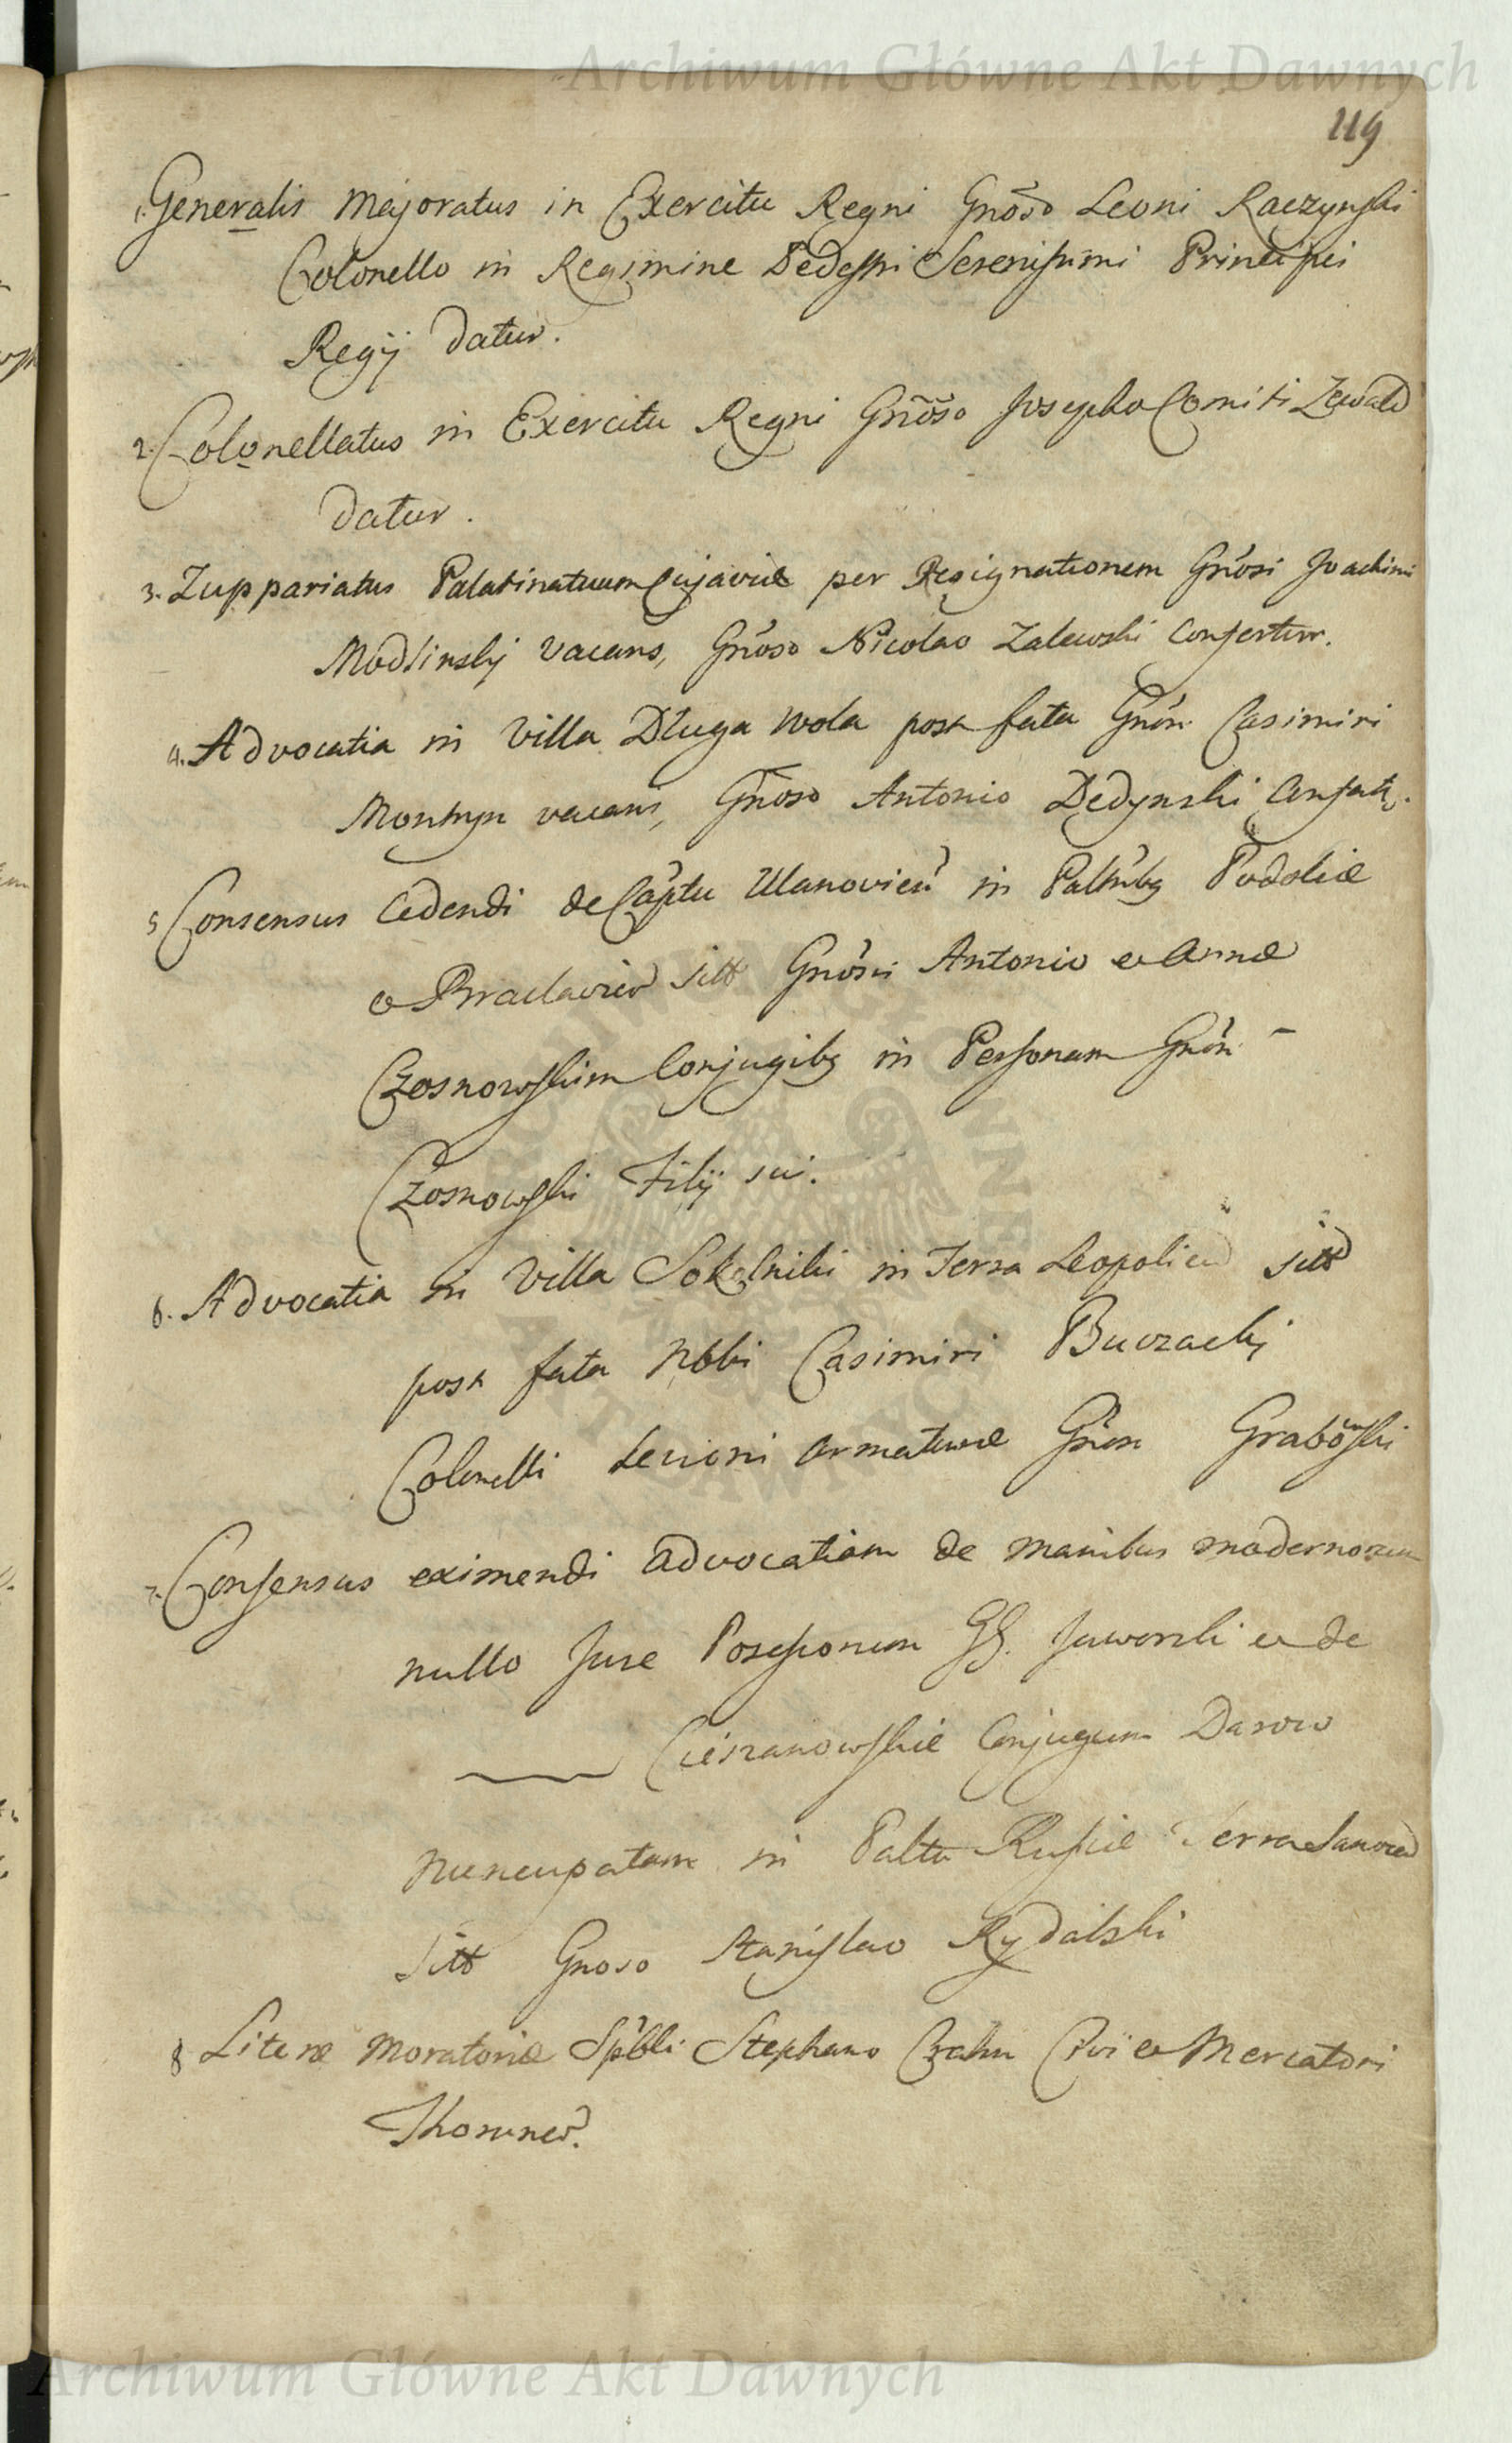 Archiwum Główne Akt Dawnych
119
1. Generalis Majoratus in Exercitu Regni Gnõso Leoni Raczynski
Colonello in Regimine Pedestri Serenissimi Principis
Regij datur.
2. Colonellatus in Exercitu Regni Gnõso Josepho Comiti Zewald
datur.
3. Zuppariatus Palatinatuum Cujaviæ per Resignationem Gnosi Joachimi
Modlinskij vacans, Gnoso Nicolao Zalewski Confertur.
4. Advocatia in Villa Długa Wola post fata Gnõn Casimiri
vacans, Gnoso Antonio Dedynski
5 Consensus Cedendi de Captu Ulanovien in Paltnbg Podoliæ
et Braclavien sitt Gnosis Antonio et Annæ
Czosnowskim Conjugibg in Personam Gnõn
Czosnowski Filij sui.
6. Advocatia in Villa Sokolniki in Terra Leopolien sitt
post fata Nbli Casimiri Buczackij
Colonelli Levioris Armaturæ Gnõn Grabowski
7. Consensus eximendi Advocatiam de Manibus modernorum
nullo Jure Possessorum GG. Jaworski et de
Cieszanowskie Conjugum Darow
nuncupatam in Paltu Russiæ Terra Sanocen
sitt Gnoso Stanislao Rydalski
8 Literæ Moratoriæ Spbli Stephano Czahn Civi et Mercatori
Thorunen.
Archiwum Główne Akt Dawnych